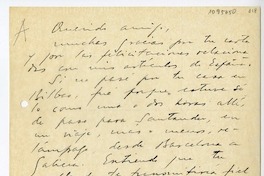 A
Querido amigo,
muchas gracias por tu carta
y por las felicitaciones relaciona
das con mis artículos de España.
Si no pasé por tu casa en
Bilbao, fué porque estuve só
lo como una o dos horas allí,
de paso para Santander, en
un viaje, mas o menos, re
lámpago desde Barcelona a
Galicia. Entiendo que tu